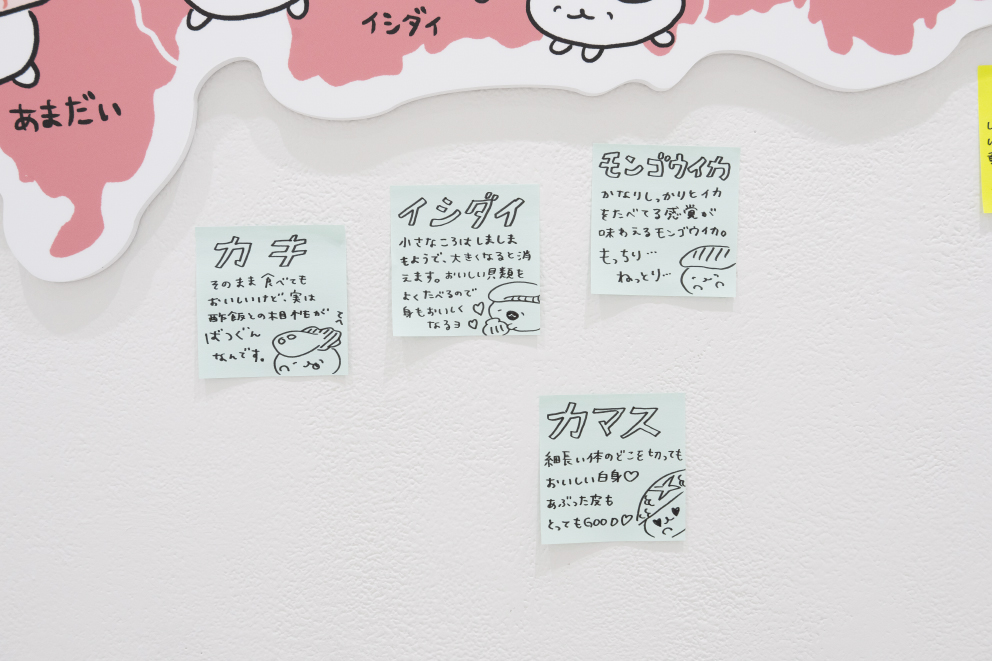 イシダイ
あまだい
カキ
そのまま食べても
おいしいけど、実は
酢飯との相性が
ばつぐん
なんです。
イシダイ
小さなころはしましま
もようで、大きくなると消
えます。おいしい貝類を
よくたべるので
身もおいしく
なるヨ
モンゴウイカ
かなりしっかりとイカ
をたべてる感覚が
味わえるモンゴウイカ。
もっちり…
ねっとり…
カマス
細長い体のどこを切っても
おいしい白身♡
あぶった皮も
とってもGOOD♡